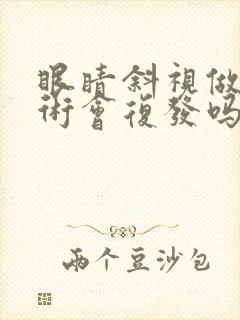 眼睛斜視做
術會復發嗎
兩个豆沙包